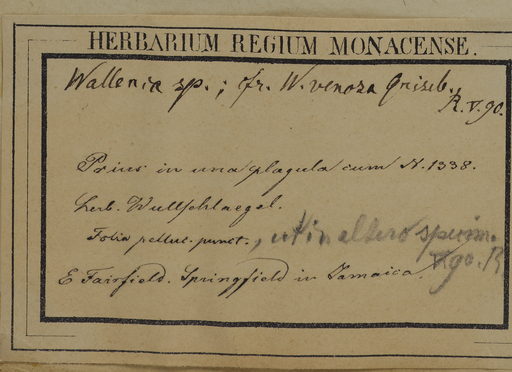 HERBARIUM REGIUM MONACENSE.
Wallenia sp.; cfr. W. venosa Griseb.
R. V. 90.
Prius in una plagula cum N. 1338.
herb. Wullschlaegel.
Folia pelluc. punct., uti in altero specim.
V 90. R
E Fairfield. Springfield in Jamaica